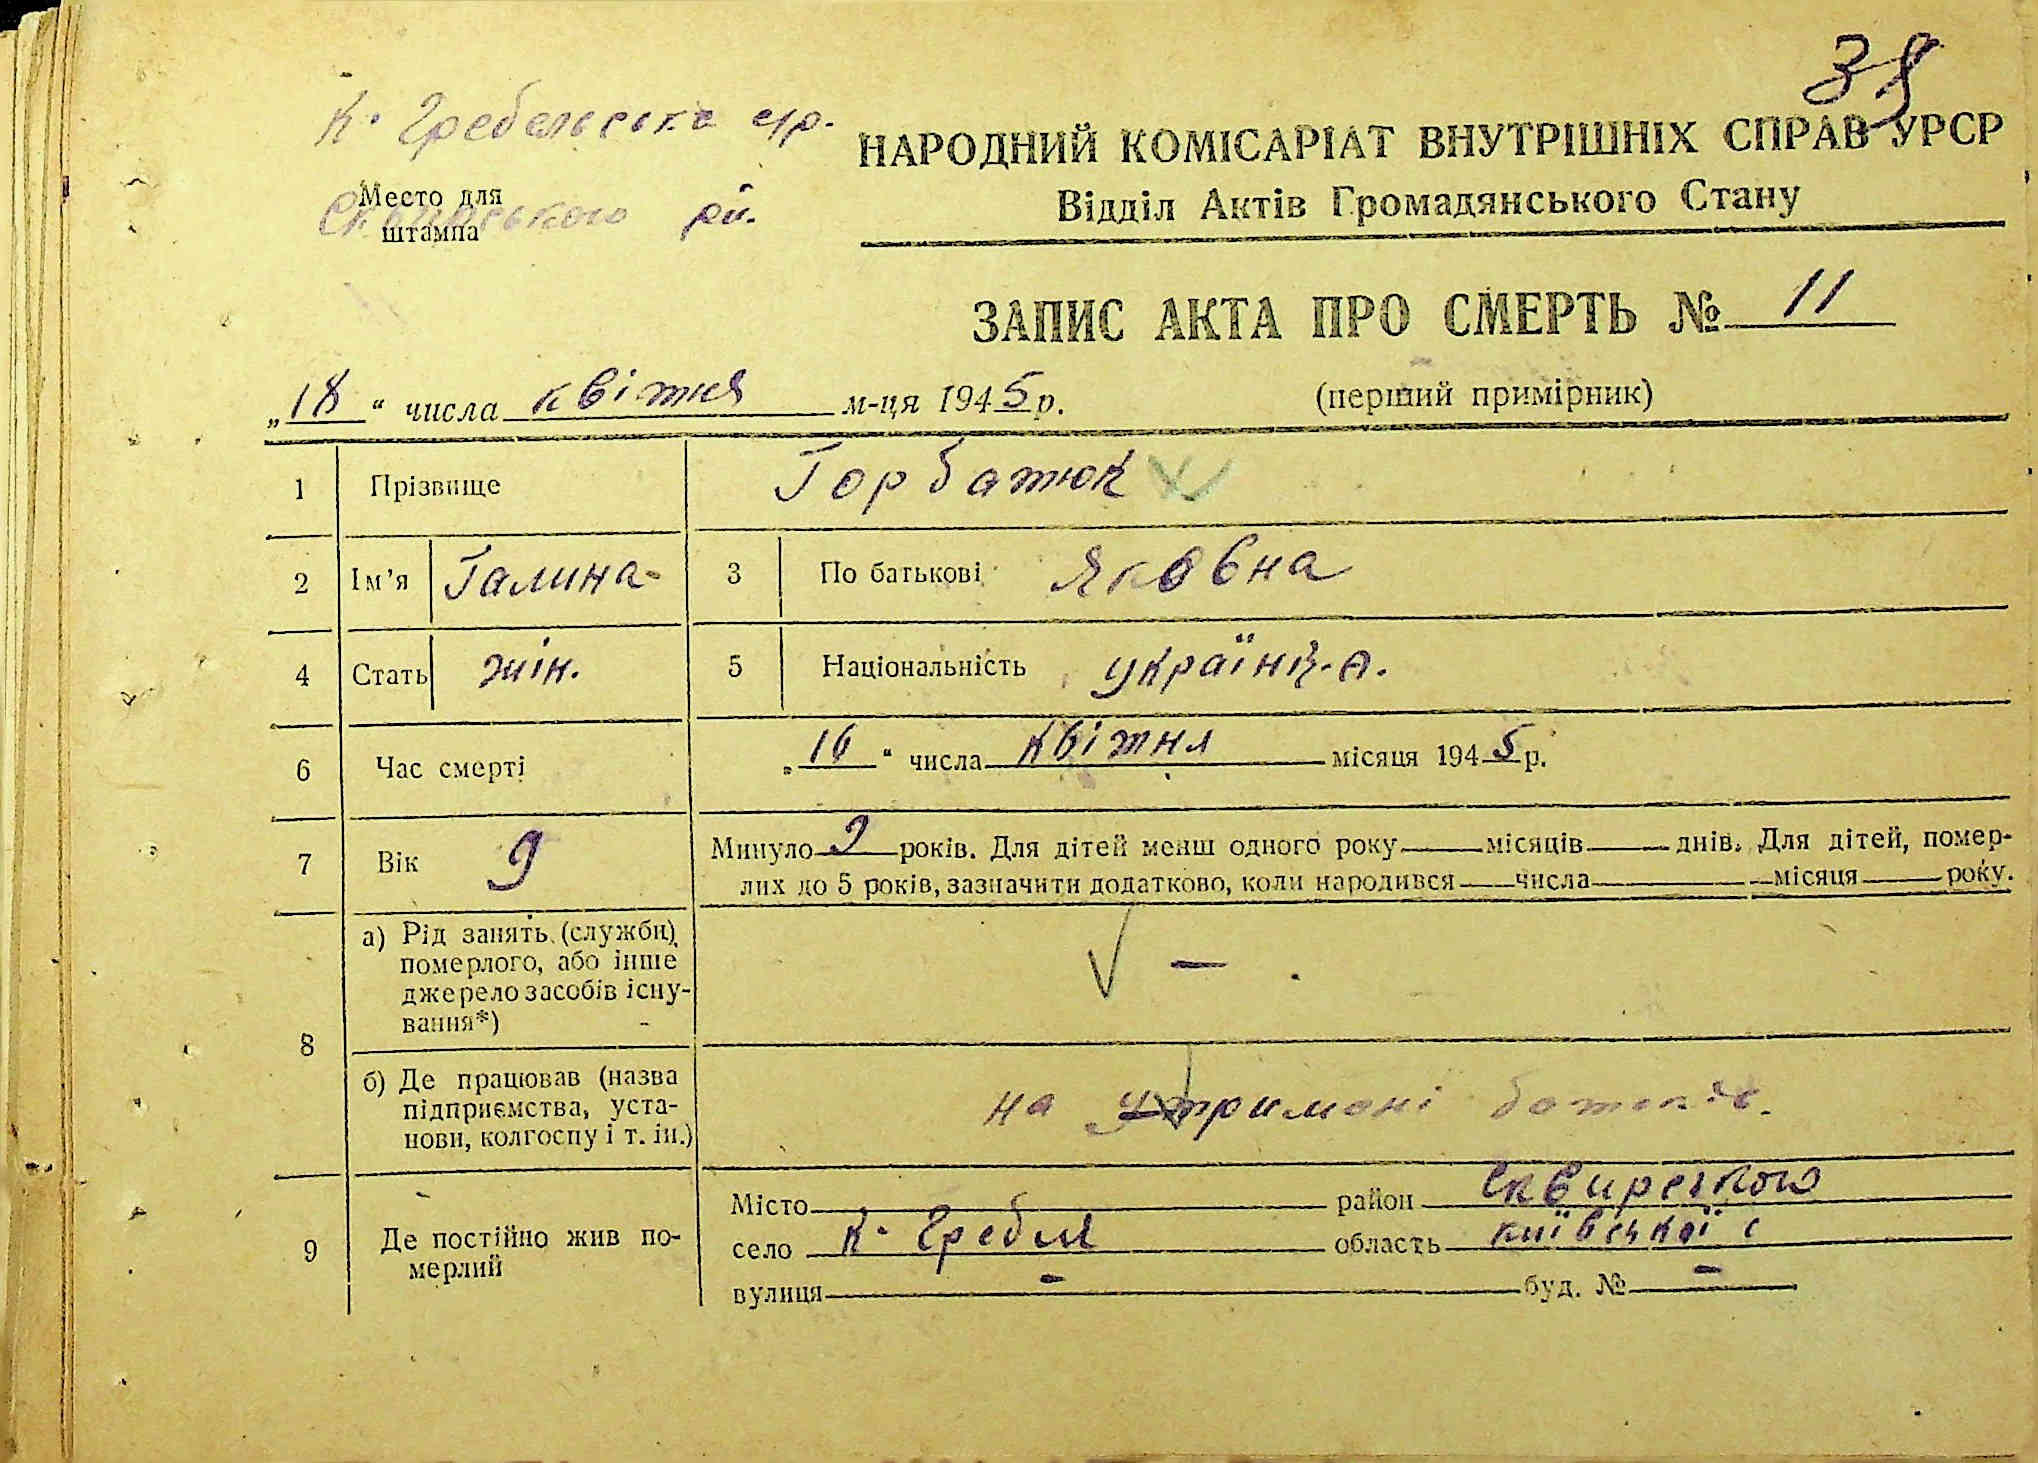 38
К. Гребельська с/р.
Сквирського рй.
Место для
штампа
НАРОДНИЙ КОМІСАРІАТ ВНУТРІШНІХ СПРАВ УРСР
Відділ Актів Громадянського Стану
ЗАПИС АКТА ПРО СМЕРТЬ № 11
„18“ числа квітня м-ця 1945 р. (перший примірник)
1 Прізвище Горбатюк
2 Ім’я Галина 3 По батькові Яковна
4 Стать жін. 5 Національність українк.а.
6 Час смерті „16“ числа квітня місяця 1945 р.
7 Вік 9 Минуло 9 років. Для дітей менш одного року місяців днів. Для дітей, помер-
лих до 5 років, зазначити додатково, коли народився числа місяця року.
8 а) Рід занять (служби)
померлого, або інше
джерело засобів існу-
вання*) –
б) Де працював (назва
підприємства, уста-
нови, колгоспу і т. ін.) на утримані батьків.
9 Де постійно жив по-
мерлий
Місто район Сквирського
село К. Гребля область київської
вулиця – буд. № –